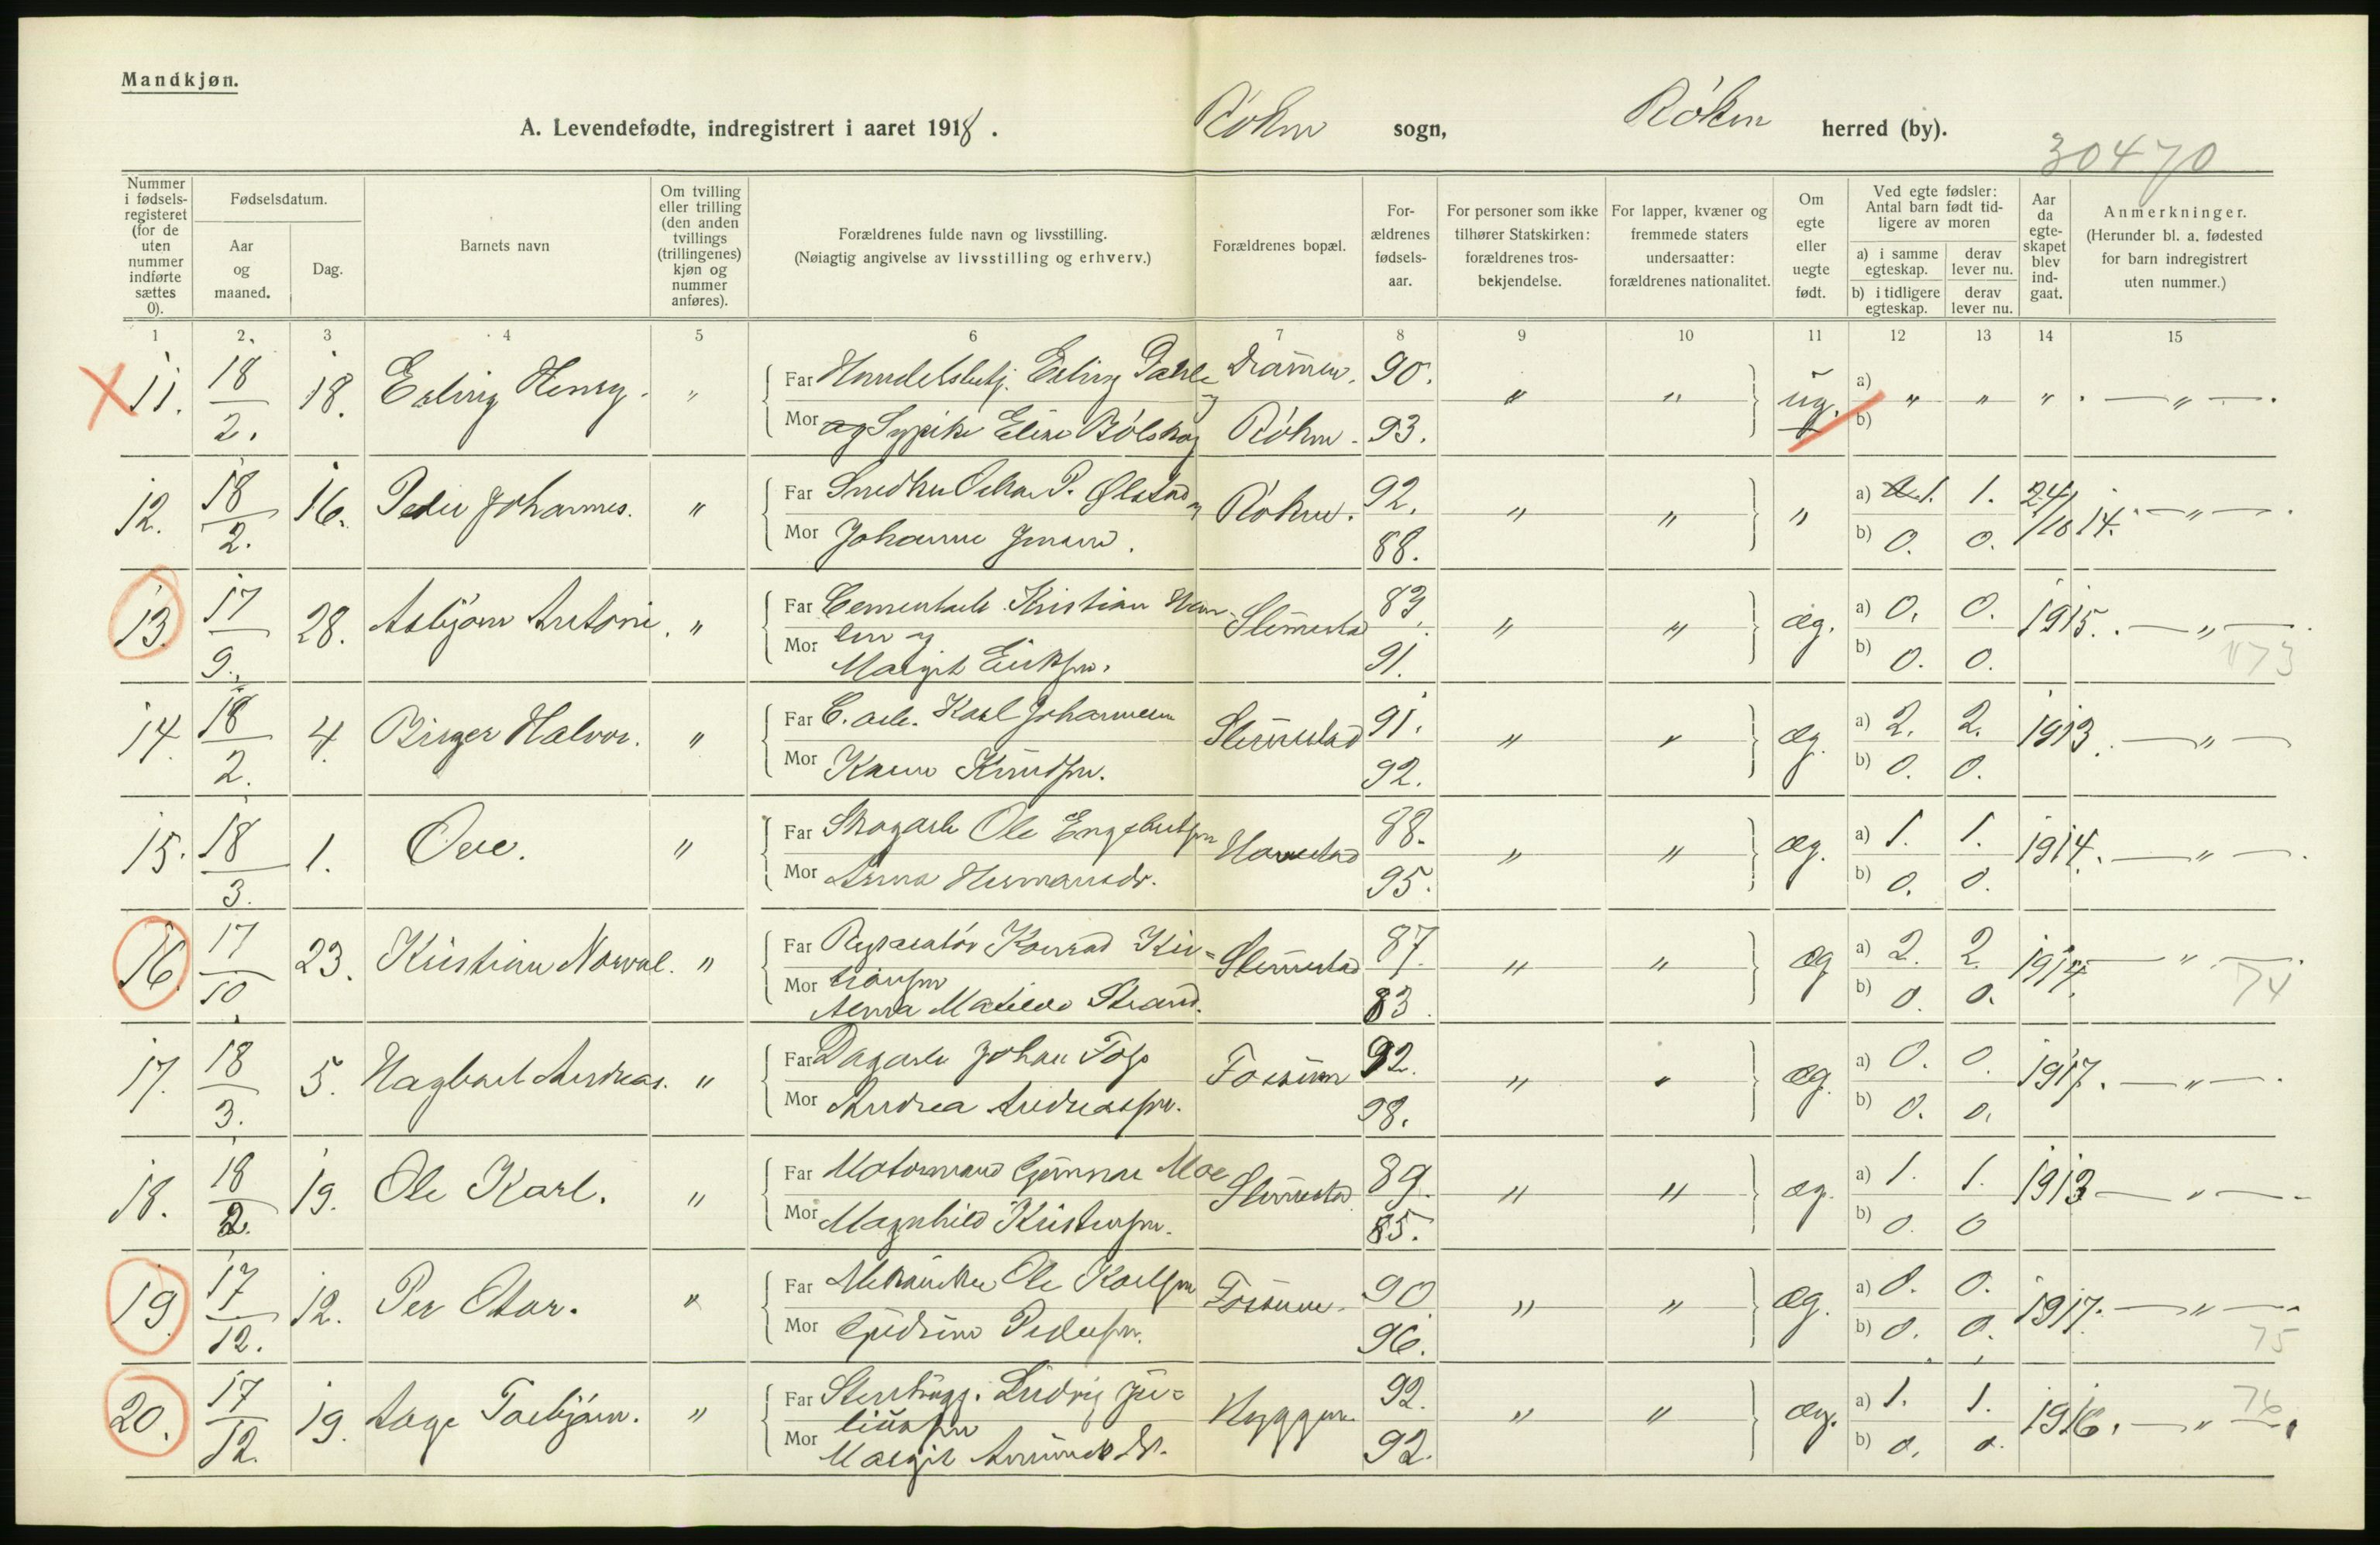 Mandkjøn.
A. Levendefødte, indregistrert i aaret 1918. Røken sogn, Røken herred (by).
30470
Nummer i fødselsregisteret (for de uten nummer indførte sættes 0).
Fødselsdatum.
Aar og maaned.
Dag.
Barnets navn
Om tvilling eller trilling (den anden tvillings (trillingenes) kjøn og nummer anføres).
Forældrenes fulde navn og livsstilling.
(Nøiagtig angivelse av livsstilling og erhverv.)
Forældrenes bopæl.
Forældrenes fødselsaar.
For personer som ikke tilhører Statskirken: forældrenes trosbekjendelse.
For lapper, kvæner og fremmede staters undersaatter: forældrenes nationalitet.
Om egte eller uegte født.
Ved egte fødsler: Antal barn født tidligere av moren
a) i samme egteskap.
derav lever nu.
b) i tidligere egteskap.
derav lever nu.
Aar da egteskapet blev indgaat.
Anmerkninger.
(Herunder bl. a. fødested for barn indregistrert uten nummer.)
1 2. 3 4 5 6 7 8 9 10 11 12 13 14 15
11. 18/2. 18. Erling Henry. " Far Handelsbetj. Erling Dahle Drammen. 90. " " ug. a) " " " — " —.
Mor og Sypike Elise Bølstad Røken. 93. b)
12. 18/2. 16. Peder Johannes. " Far Snedker Oskar P. Ølstad og Røken. 92. " " " a) 1. 1. 24/10 14. — " —.
Mor Johanne Jensen. 88. b) 0. 0.
13. 17/9. 28. Asbjørn Antoni. " Far Cementarb. Kristian Han- Slemmestad 83. " " æg. a) 0. 0. 1915. — " —.
Mor sen og
Margit Eriksen. 91. b) 0. 0.
173
14. 18/2. 4. Birger Halvor. " Far C. arb. Karl Johannesen Slemmestad 91. " " æg. a) 2. 2. 1913. — " —
Mor Karen Knudsen. 92. b) 0. 0.
15. 18/3. 1. Ove. " Far Skogarb. Ole Engebretsen 88. " " æg. a) 1. 1. 1914. — " —.
Mor Anna Hermansdr. 95. b) 0. 0.
16. 17/10. 23. Kristian Norval. " Far Reparatør Konrad Kris= Slemmestad 87. " " æg a) 2. 2. 1914. — " —.
Mor tiansen
Anna Matilde Strand. 83. b) 0. 0.
74
17. 18/3. 5. Hagbart Andreas. " Far Dagarb. Johan Foss Fossum 92. " " æg. a) 0. 0. 1917. — " —.
Mor Andrea Andreassen. 98. b) 0. 0.
18. 18/2. 19. Ole Karl. " Far Motormand Gunnar Moe Slemmestad. 89. " " æg. a) 1. 1. 1913 — " —
Mor Magnhild Kristensen. 85. b) 0. 0
19. 17/12. 12. Per Otar. " Far Mekaniker Ole Karlsen Fossum. 90. " " æg. a) 0. 0. 1917. — " —
Mor Gudrun Pedersen. 96. b) 0. 0.
75
20. 17/12. 19. Aage Torbjørn. " Far Stenhugg. Ludvig Ju= Hyggen. 92. " " æg. a) 1. 1. 1916. — " —.
Mor liussen
Margit Amundsdr. 92. b) 0. 0.
76